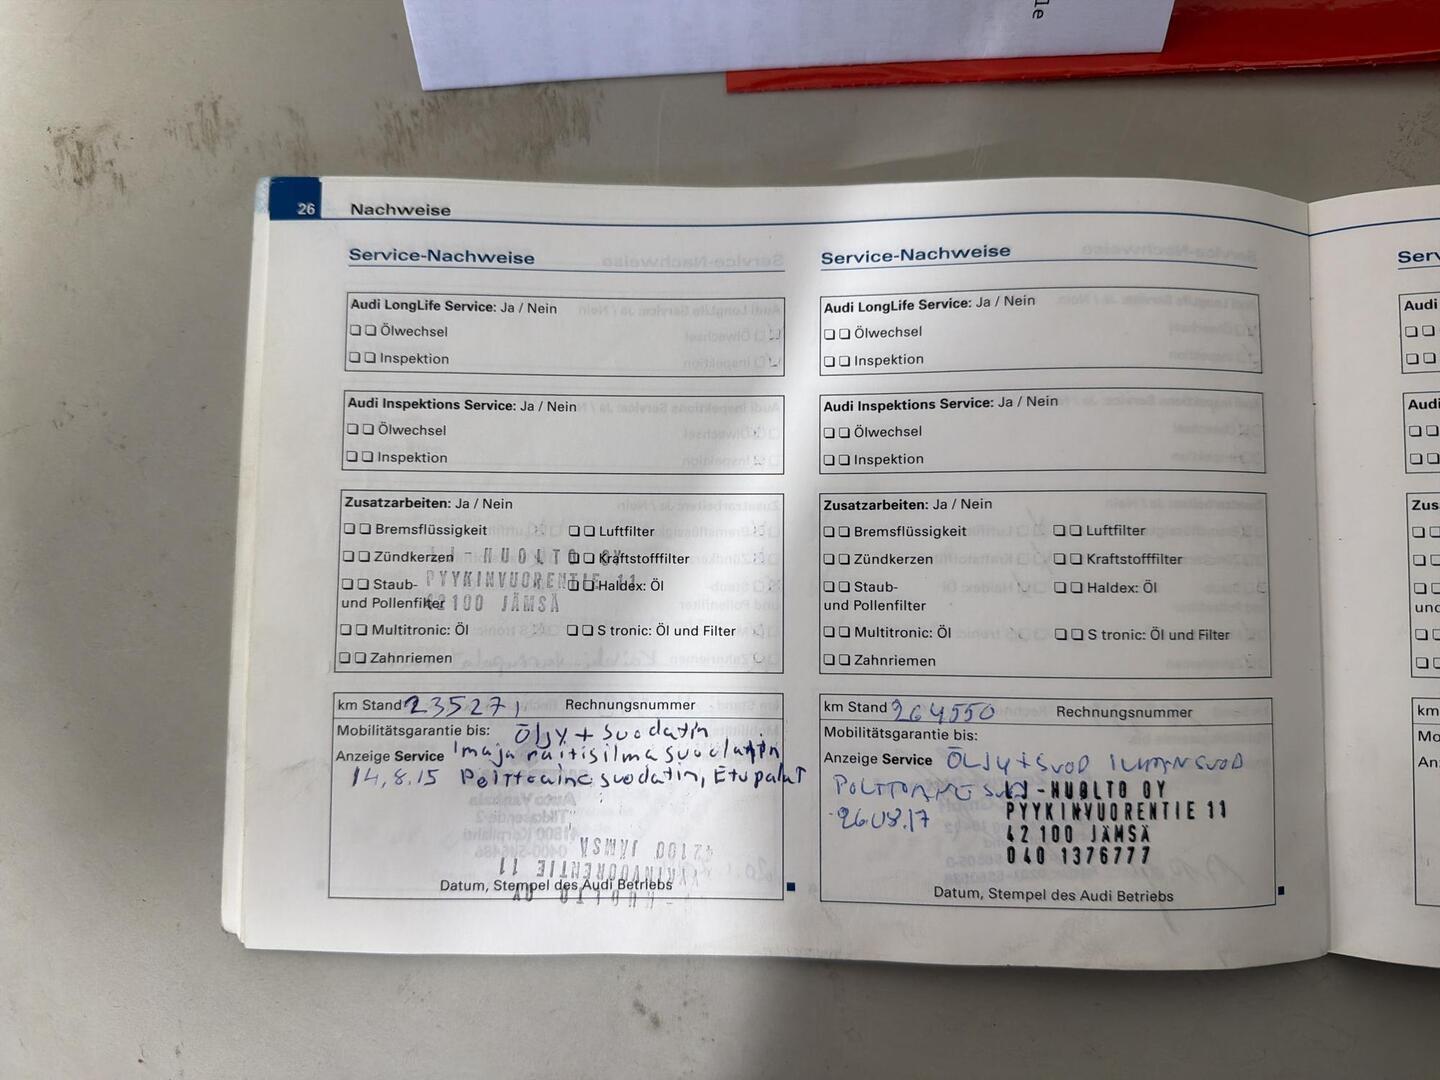 le
26 Nachweise
Service-Nachweise
Audi LongLife Service: Ja / Nein
Ölwechsel
Inspektion
Audi Inspektions Service: Ja / Nein
Ölwechsel
Inspektion
Zusatzarbeiten: Ja / Nein
Bremsflüssigkeit Luftfilter
Zündkerzen Kraftstofffilter
Staub- Haldex: Öl
und Pollenfilter
Multitronic: Öl S tronic: Öl und Filter
Zahnriemen
LJ-HUOLTO OY
PYYKINVUORENTIE 11
42100 JÄMSÄ
km Stand 235271 Rechnungsnummer
Mobilitätsgarantie bis: Öljy + suodatin
Anzeige Service Ilma ja raitisilmasuodatin
14.8.15 Polttoaine suodatin, Etupalat
42100 JÄMSÄ
PYYKINVUORENTIE 11
HUOLTO OY
Datum, Stempel des Audi Betriebs
Service-Nachweise
Audi LongLife Service: Ja / Nein
Ölwechsel
Inspektion
Audi Inspektions Service: Ja / Nein
Ölwechsel
Inspektion
Zusatzarbeiten: Ja / Nein
Bremsflüssigkeit Luftfilter
Zündkerzen Kraftstofffilter
Staub- Haldex: Öl
und Pollenfilter
Multitronic: Öl S tronic: Öl und Filter
Zahnriemen
km Stand 264550 Rechnungsnummer
Mobilitätsgarantie bis:
Anzeige Service ÖLJY+SUOD ILMANSUOD
POLTTOAINE SUOD
26.08.17
LJ-HUOLTO OY
PYYKINVUORENTIE 11
42 100 JÄMSÄ
040 1376777
Datum, Stempel des Audi Betriebs
Serv
Audi
Audi
Zus
und
km
Mo
An